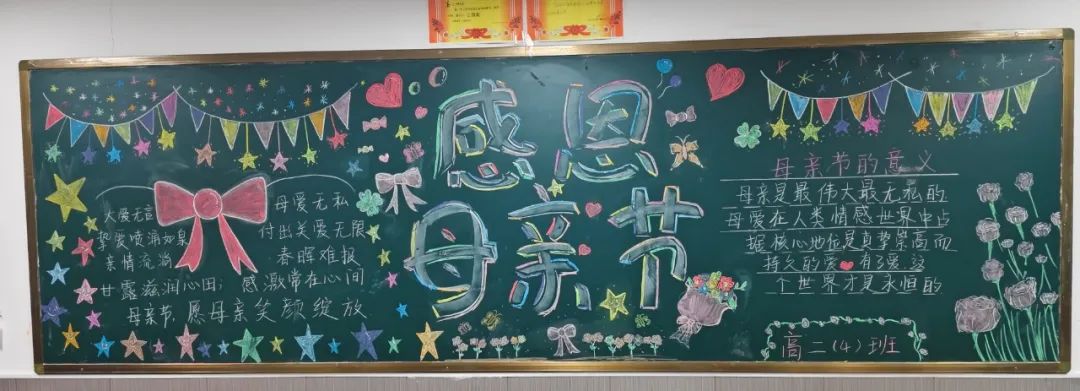 感恩
母亲节
大爱无言
挚爱喷涌如泉
亲情流淌
母爱无私
付出关爱无限
春晖难报
甘露滋润心田，感激常在心间
母亲节，愿母亲笑颜绽放
母亲节的意义
母亲是最伟大最无私的
母爱在人类情感世界中占
据核心地位是真挚崇高而
持久的爱❤有了爱，这
个世界才是永恒的
高二(4)班